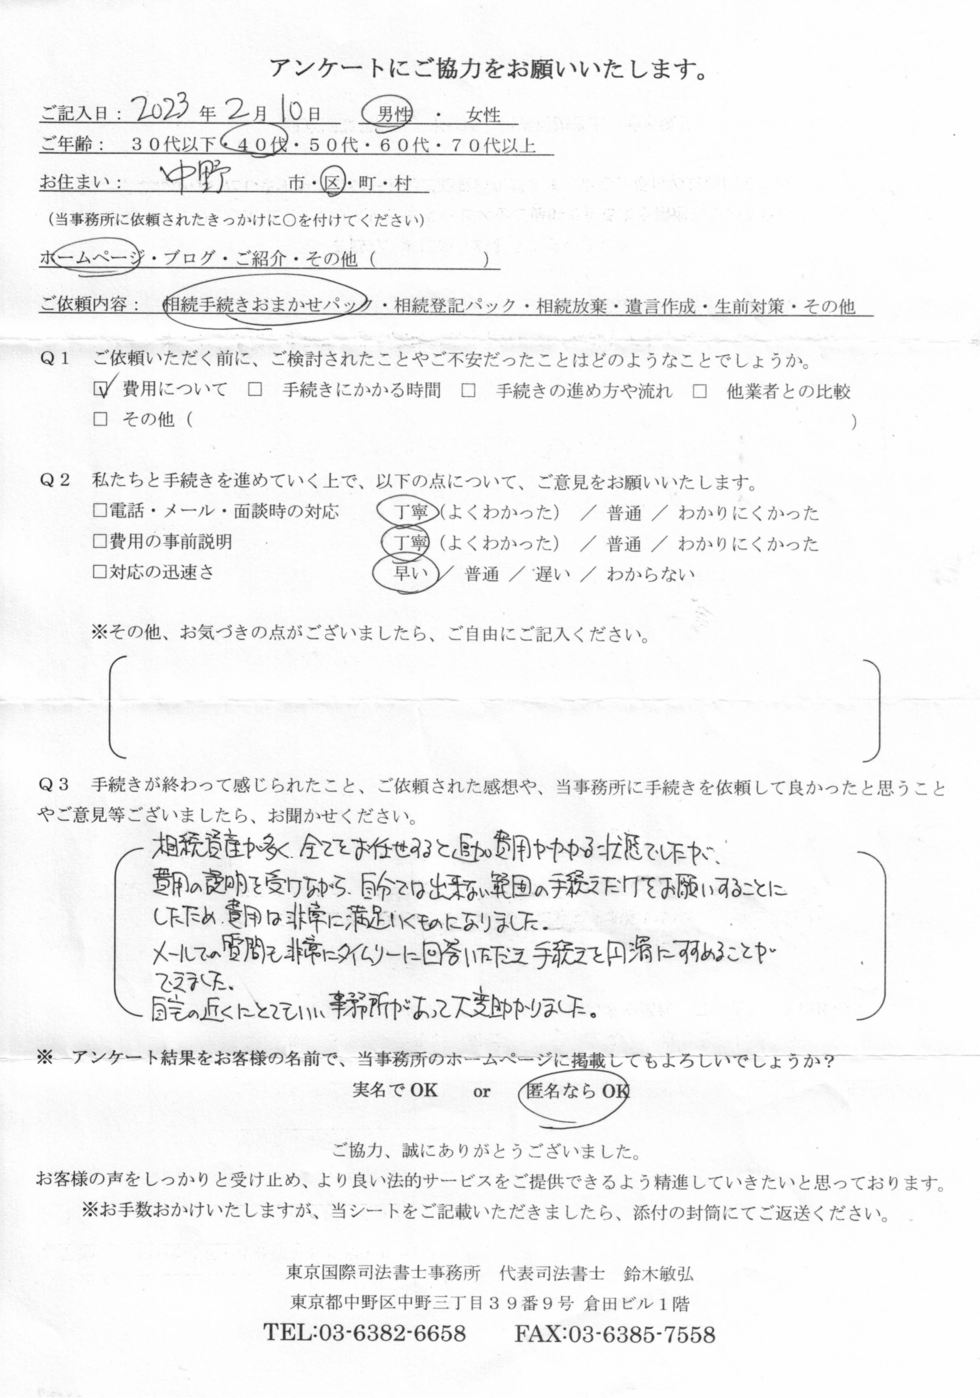 アンケートにご協力をお願いいたします。
ご記入日： 2023 年 2 月 10 日　男性　・　女性
ご年齢：　３０代以下・４０代・５０代・６０代・７０代以上
お住まい：　中野　市・区・町・村
（当事務所に依頼されたきっかけに○を付けてください）
ホームページ・ブログ・ご紹介・その他（　　　　　　）
ご依頼内容：　相続手続きおまかせパック・相続登記パック・相続放棄・遺言作成・生前対策・その他
Ｑ１　ご依頼いただく前に、ご検討されたことやご不安だったことはどのようなことでしょうか。
☑ 費用について　□　手続きにかかる時間　□　手続きの進め方や流れ　□　他業者との比較
□　その他（　　　　　　　　　　　　　　　　　　　　）
Ｑ２　私たちと手続きを進めていく上で、以下の点について、ご意見をお願いいたします。
□電話・メール・面談時の対応　　丁寧（よくわかった）　／ 普通 ／ わかりにくかった
□費用の事前説明　　丁寧（よくわかった）　／ 普通 ／ わかりにくかった
□対応の迅速さ　　早い ／ 普通 ／ 遅い ／ わからない
※その他、お気づきの点がございましたら、ご自由にご記入ください。
Ｑ３　手続きが終わって感じられたこと、ご依頼された感想や、当事務所に手続きを依頼して良かったと思うこと
やご意見等ございましたら、お聞かせください。
相続資産が多く、全てをお任せすると追加費用がかかる状態でしたが、
費用の説明を受けながら、自分では出来ない範囲の手続きだけをお願いすることに
したため、費用は非常に満足いくものになりました。
メールでの質問も非常にタイムリーに回答いただき手続きを円滑にすすめることが
できました。
自宅の近くにとてもいい事務所があって大変助かりました。
※　アンケート結果をお客様の名前で、当事務所のホームページに掲載してもよろしいでしょうか？
実名で OK　　or　　匿名なら OK
ご協力、誠にありがとうございました。
お客様の声をしっかりと受け止め、より良い法的サービスをご提供できるよう精進していきたいと思っております。
※お手数おかけいたしますが、当シートをご記載いただきましたら、添付の封筒にてご返送ください。
東京国際司法書士事務所　代表司法書士　鈴木敏弘
東京都中野区中野三丁目３９番９号 倉田ビル１階
TEL:03-6382-6658　　FAX:03-6385-7558